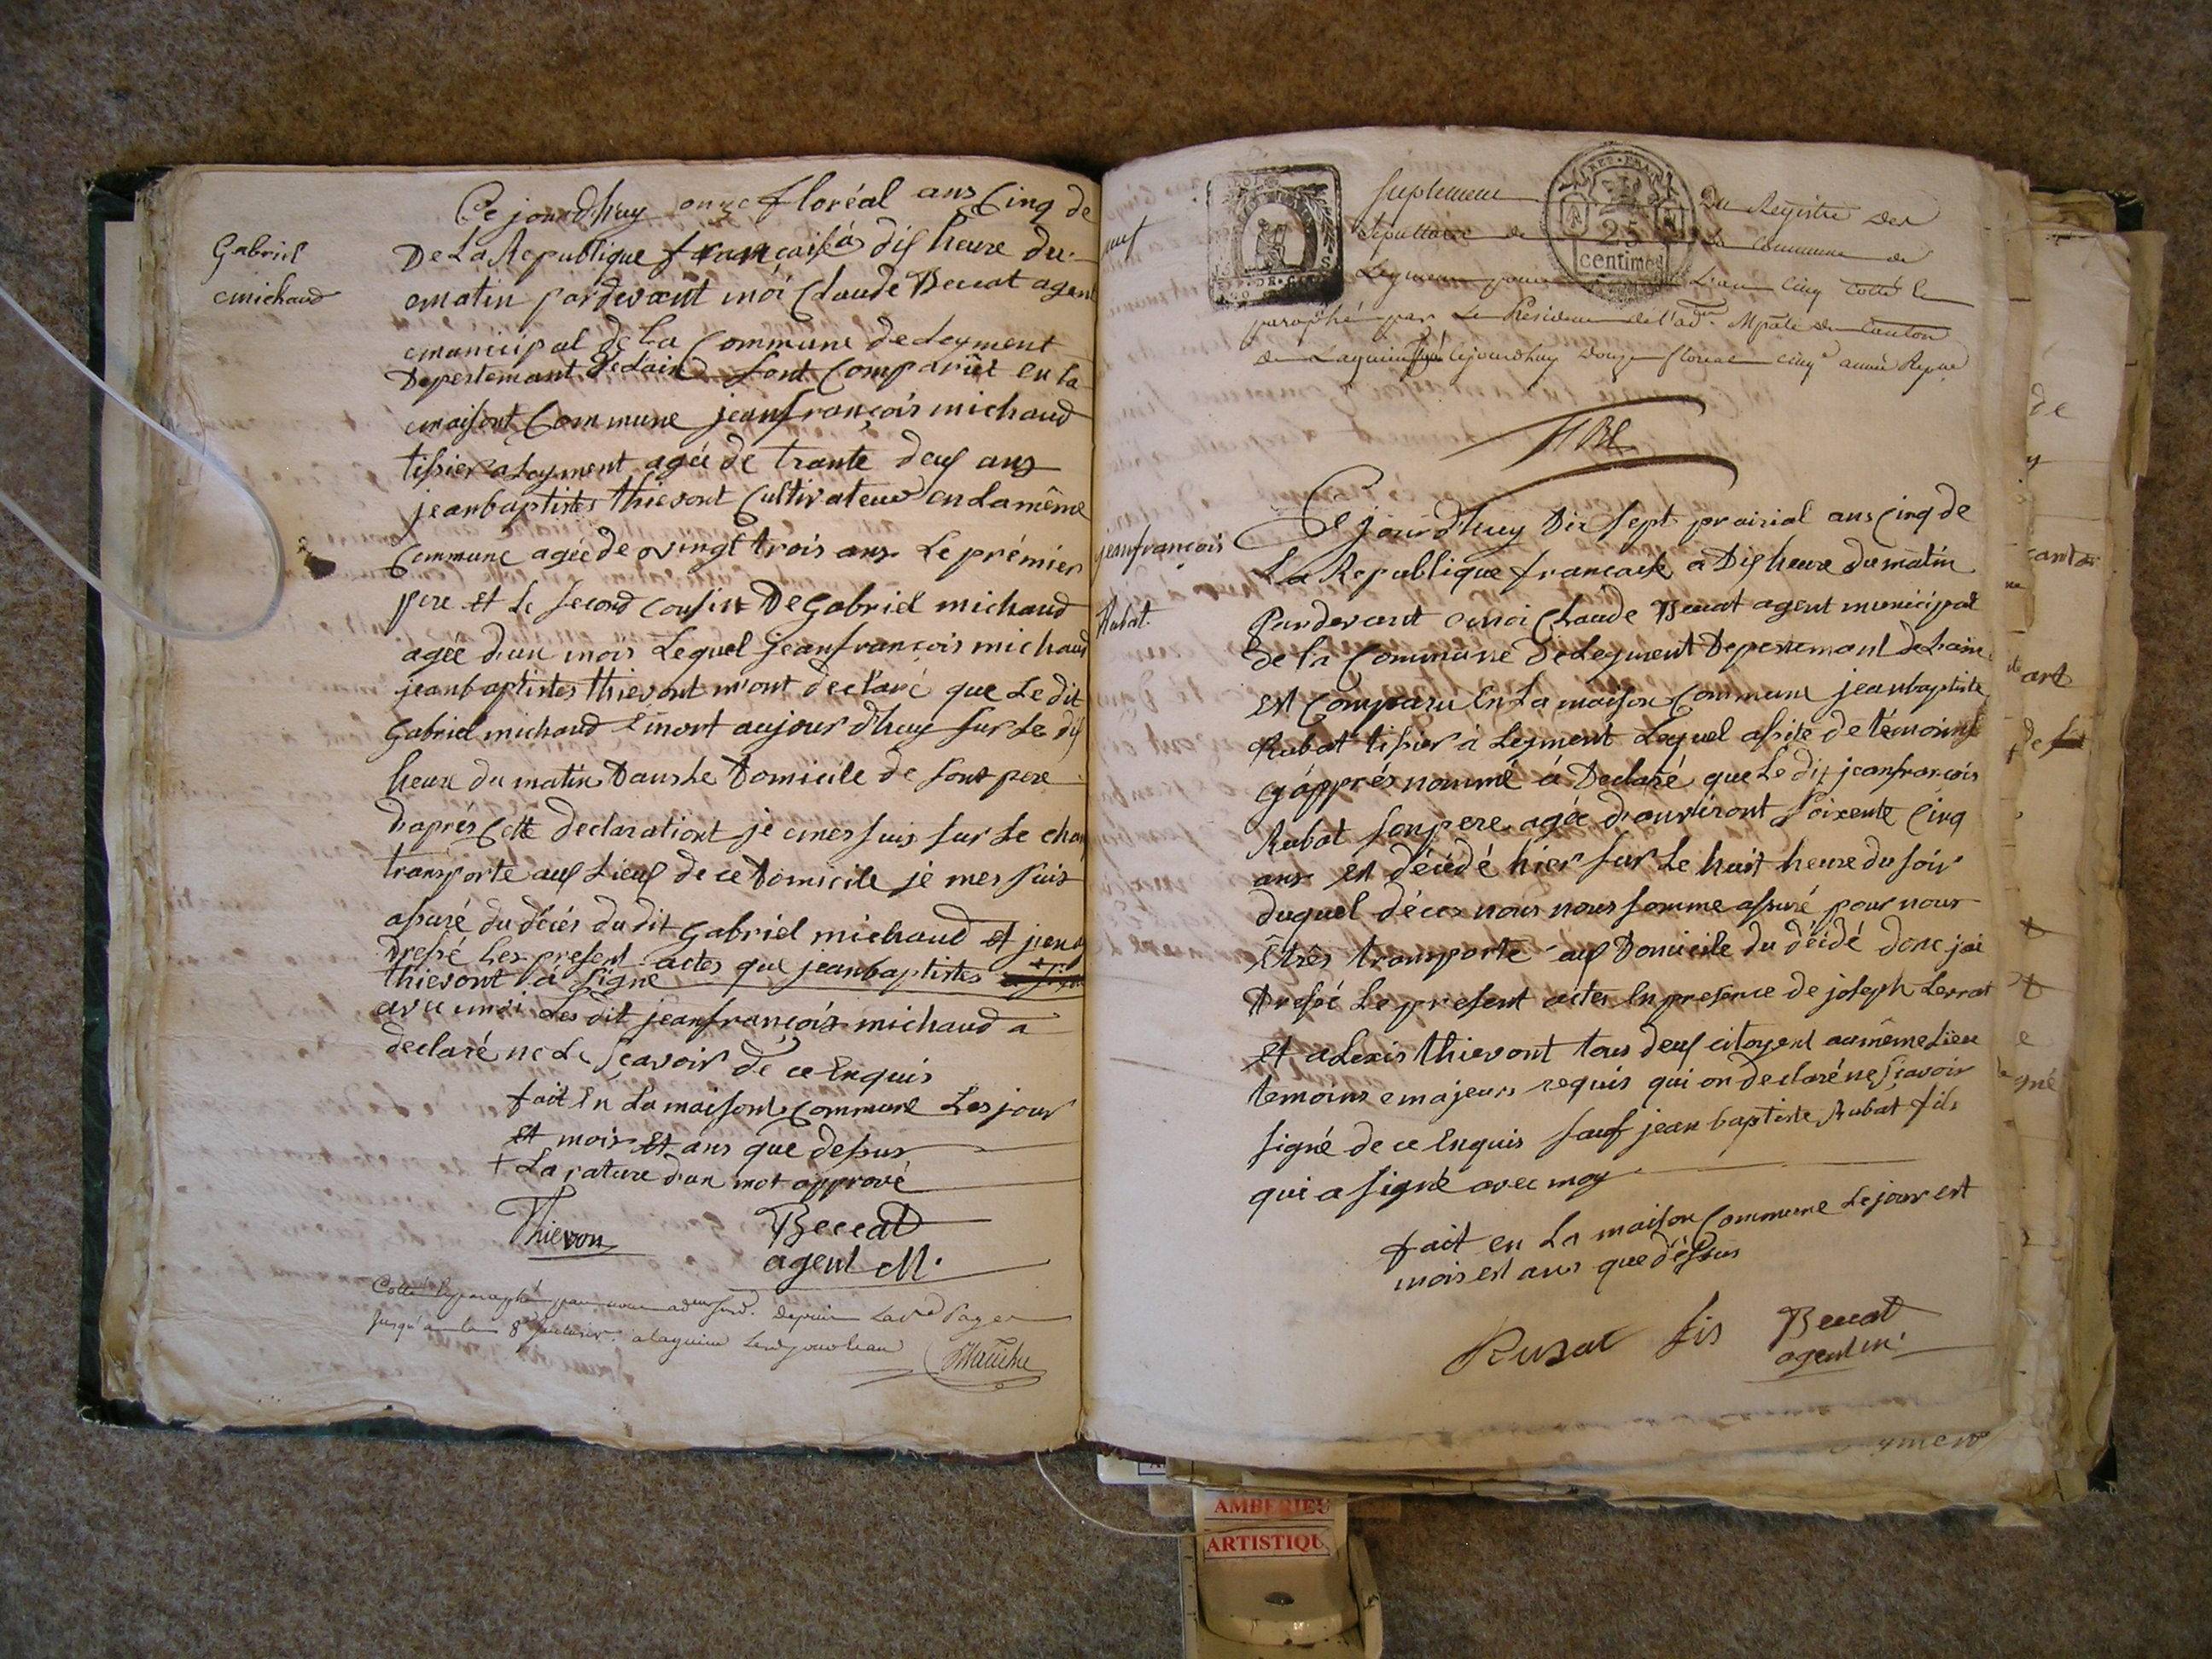 Gabriel
michaud
Ce jourdhuy onze floréal ans Cinq de
De La Republique françaisse à dis heure du
matin pardevant moi Claude Beccat agent
municipal de la Commune de Leyment
Depertemant de Lain Sont Compariët en la
maisont Commune jeanfrançois michaud
tisier a Leyment agée de trante deux ans
jeanbaptistes thievont Cultivateur en La même
Commune agée de vingt trois ans Le prémier
pere et Le second cousin De Gabriel michaud
agée d'un mois Lequel jeanfrançois michaud
jeanbaptistes thievont m'ont declaré que Le dit
Gabriel michaud Et mort aujourd'huy sur Le dis
heure du matin Dans Le Domicile de sont pere
D'aprés Cette declarationt je mes suis sur Le cham
transporte aux Lieux de ce Domicile je mes suis
assuré du décés du dit Gabriel michaud et j'en ai
Dressé Les present actes que jeanbaptistes
thievont à signé
avec moi Les dit jeanfrançois michaud a
declaré ne Le scavoir de ce Enquis
fait En La maisont Commune Les jour
et mois et ans que dessus
+ La rature d'un mot apprové
Thievon Beccat
agent M.
Cotté paraphé par nous depuis La Page
jusqu'a la 8 a lagnieu
neuf
Suplement du Registre des
sépultures de la Commune de
REP. FRA
25
centimes
Leyment pour L'an Cinq Cotté &
paraphé par Le Président de l'ad.on Mpale du Canton
de Lagnieu cejourdhuy Douze floreal cinq.e année Repue
jeanfrançois
Rubat.
Ce jourd'huy Dix sept prairial ans Cinq de
La Republique francaise a Dis heure du matin
Pardevant moi Claude Beccat agent municipal
de la Commune De Leyment Depertemant de Lain
est Comparu En La maison Commune jeanbaptiste
Rubat tisier à Leyment Lequel assité de témoins
cy âpprés nommé à Declaré que Le dit jeanfrançois
Rubat son pere agée d'anviront soixente Cinq
ans est décédé hier sur Le huit heure du soir
duquel déces nous nous somme assuré pour nous
êtrês transporté aux Domicile du décidé donc jai
Dressé Le present actes En presence de joseph Lerrat
et alexis thievont tous deux citoyent au même Lieu
temoins majeurs requis qui on declaré ne scavoir
signé de ce Enquis sauf jean baptiste Rubat fils
qui a signé avec moy
fait en La maison Commune Le jour est
mois est ans que déssus
Rubat fis Beccat
agent m.
AMBERIEU
ARTISTIQU